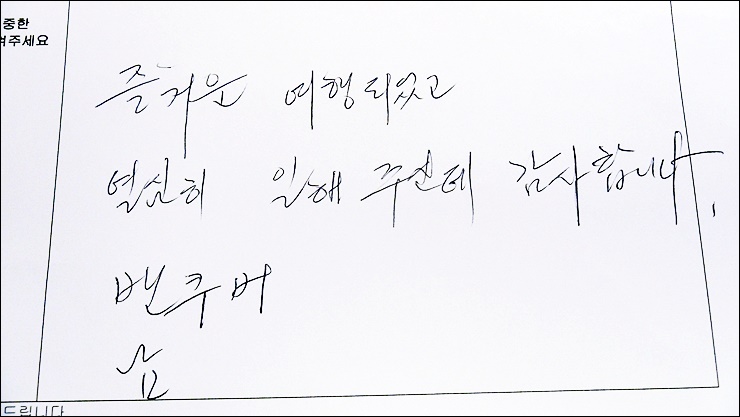 중한
겨주세요
즐거운 여행되었고
열심히 일해 주신데 감사합니다.
밴쿠버
남
드립니다